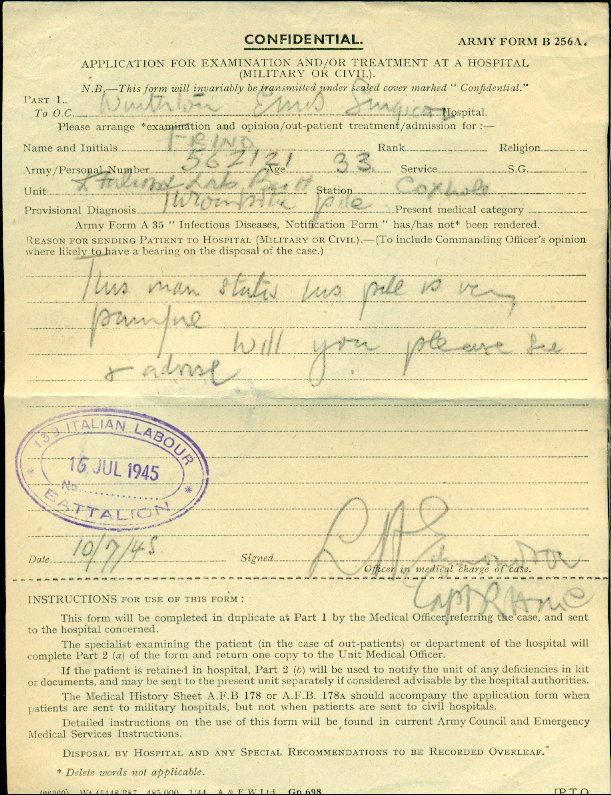 CONFIDENTIAL.
ARMY FORM B 256A.
APPLICATION FOR EXAMINATION AND/OR TREATMENT AT A HOSPITAL
(MILITARY OR CIVIL).
N.B.—This form will invariably be transmitted under sealed cover marked " Confidential."
PART 1.
To O.C. Winterton Surgical Hospital.
Please arrange *examination and opinion/out-patient treatment/admission for :—
Name and Initials Rank Religion
Army/Personal Number 562121 Age 33 Service S.G.
Unit Station Coxhoe
Provisional Diagnosis pile Present medical category
Army Form A 35 " Infectious Diseases, Notification Form " has/has not* been rendered.
REASON FOR SENDING PATIENT TO HOSPITAL (MILITARY OR CIVIL).—(To include Commanding Officer's opinion
where likely to have a bearing on the disposal of the case.)
This man states his pile is very
painful
Will you please see
& advise
139 ITALIAN LABOUR
16 JUL 1945
No.
BATTALION
Date 10/7/45 Signed L A Edmondson
Officer in medical charge of case.
Capt RAMC
INSTRUCTIONS FOR USE OF THIS FORM :
This form will be completed in duplicate at Part 1 by the Medical Officer referring the case, and sent
to the hospital concerned.
The specialist examining the patient (in the case of out-patients) or department of the hospital will
complete Part 2 (a) of the form and return one copy to the Unit Medical Officer.
If the patient is retained in hospital, Part 2 (b) will be used to notify the unit of any deficiencies in kit
or documents, and may be sent to the present unit separately if considered advisable by the hospital authorities.
The Medical History Sheet A.F.B 178 or A.F.B. 178A should accompany the application form when
patients are sent to military hospitals, but not when patients are sent to civil hospitals.
Detailed instructions on the use of this form will be found in current Army Council and Emergency
Medical Services Instructions.
DISPOSAL BY HOSPITAL AND ANY SPECIAL RECOMMENDATIONS TO BE RECORDED OVERLEAF.
* Delete words not applicable.
485,000 1/44 A & E W Ltd Gp.698 [P.T.O.